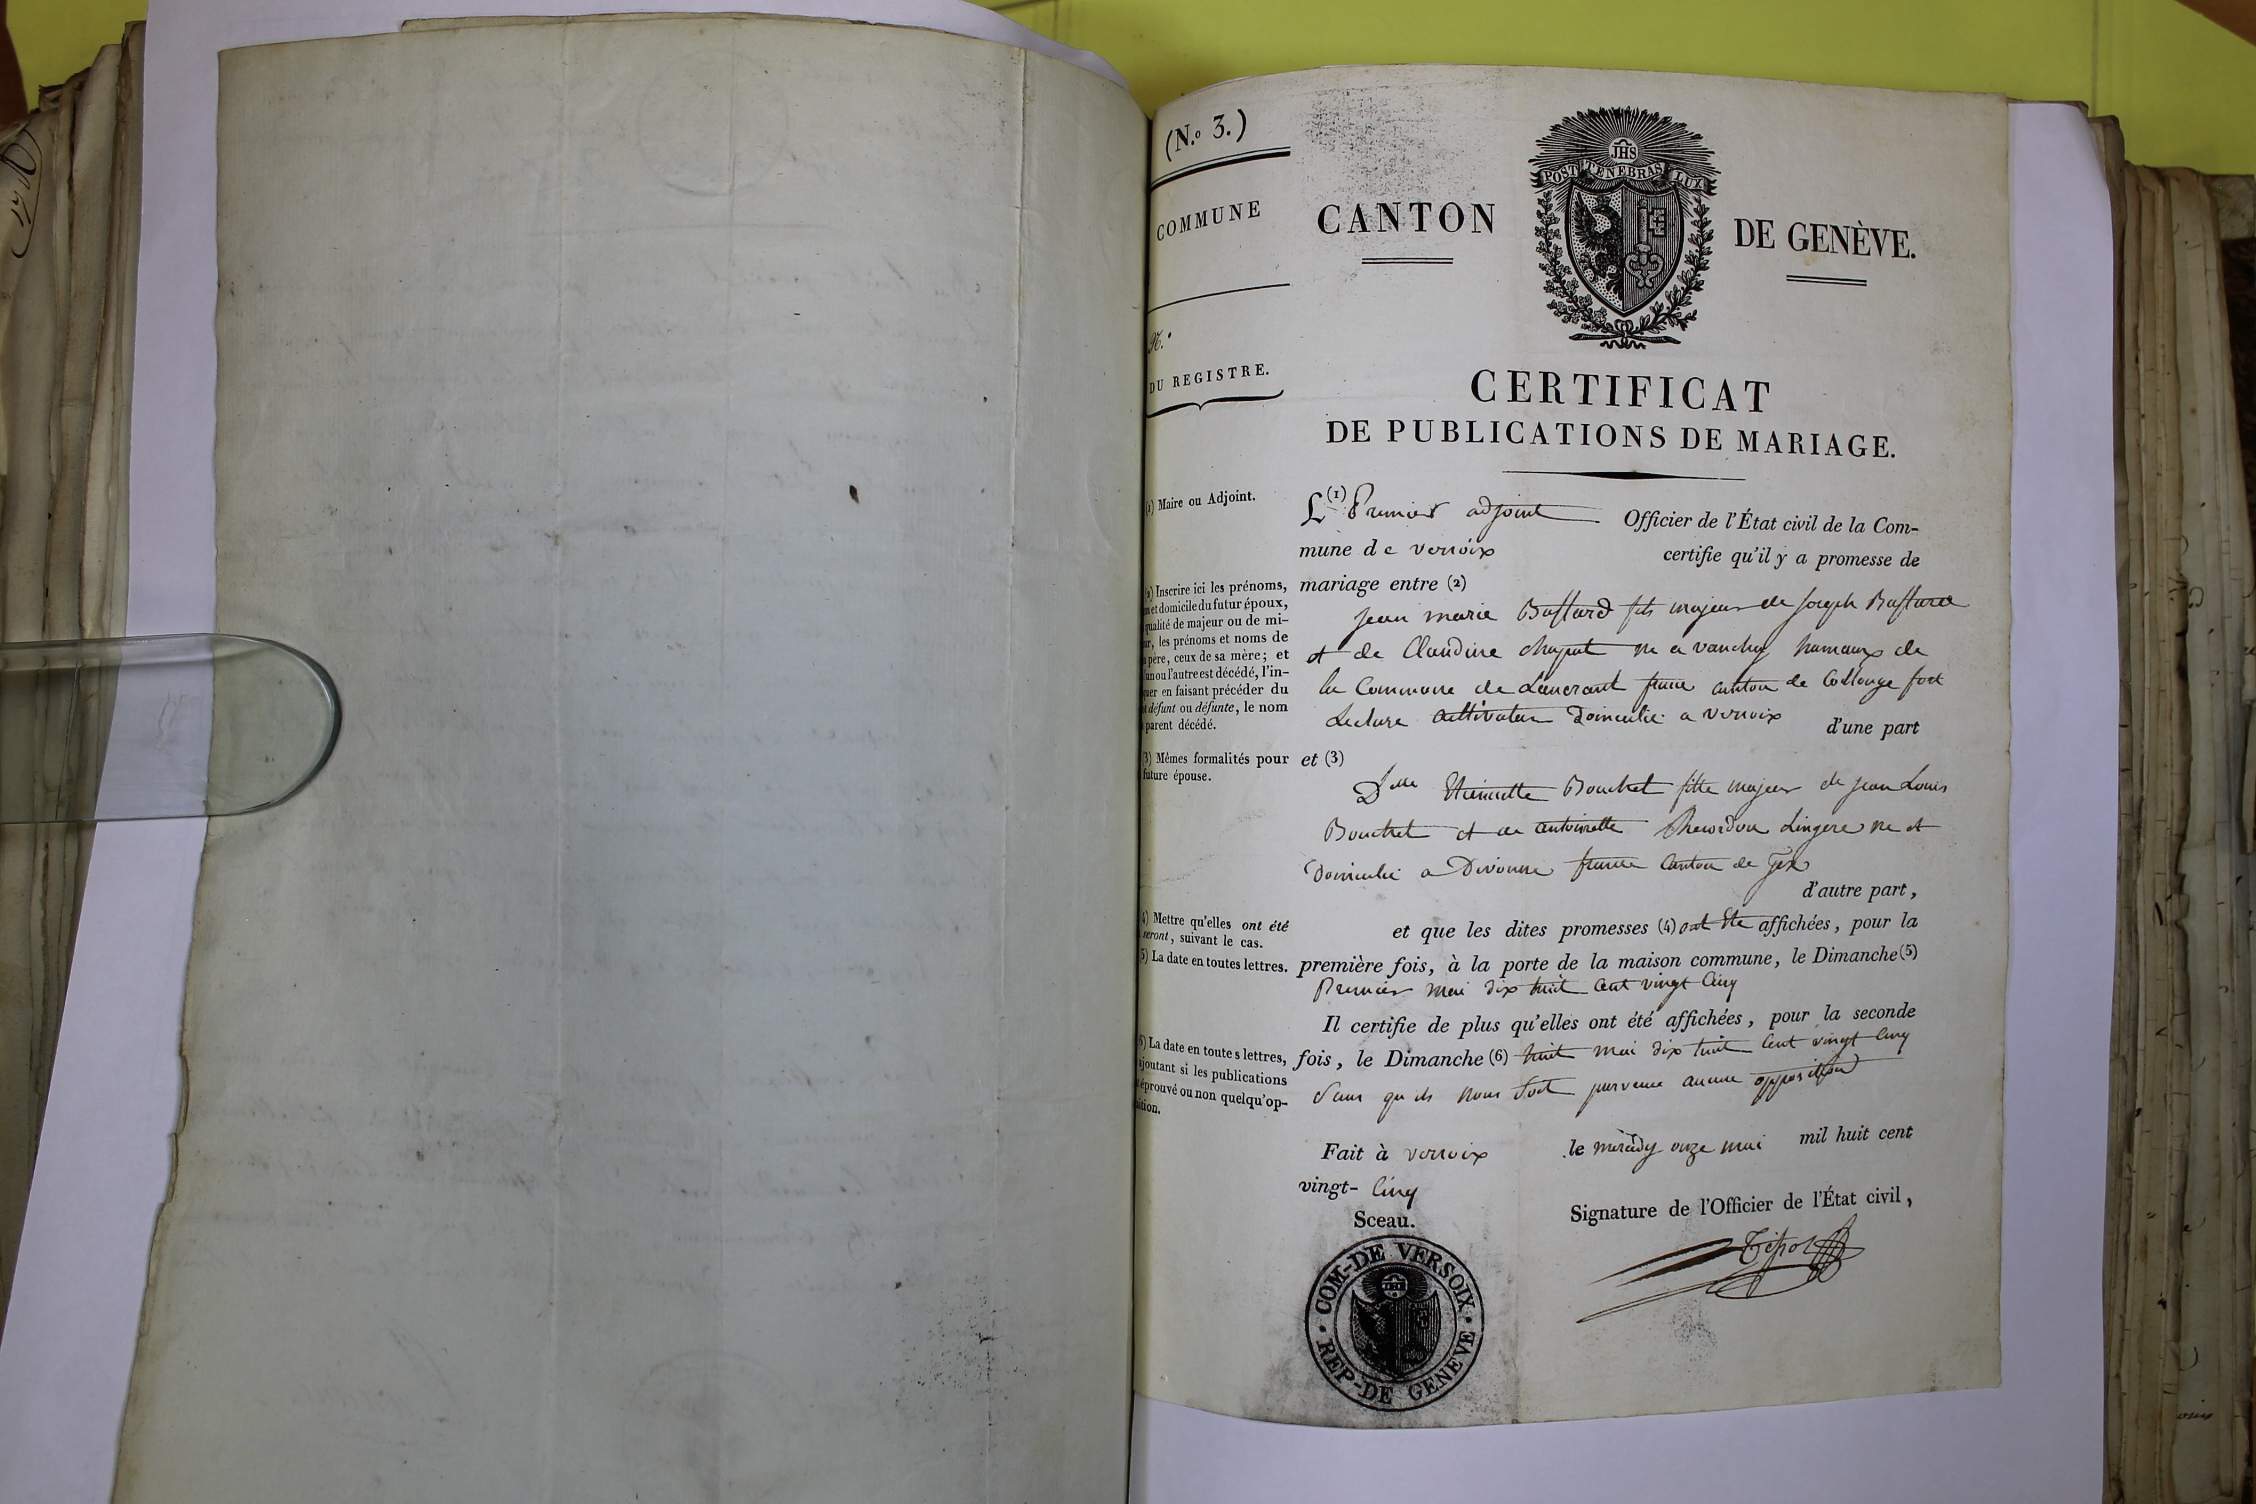 (N.º 3.)
COMMUNE
N.º
DU REGISTRE.
JHS
POST TENEBRAS LUX
CANTON DE GENÈVE.
CERTIFICAT
DE PUBLICATIONS DE MARIAGE.
(1) Maire ou Adjoint.
L(1) Premier adjoint Officier de l'État civil de la Com-
mune de versoix certifie qu'il y a promesse de
mariage entre (2)
(2) Inscrire ici les prénoms,
et domicile du futur époux,
qualité de majeur ou de mi-
, les prénoms et noms de
père, ceux de sa mère; et
l'un ou l'autre est décédé, l'in-
quer en faisant précéder du
défunt ou défunte, le nom
parent décédé.
jean marie Bastard fils majeur de joseph Bastard
et de Claudine chaput ne a vanchy hameaux de
la Commune de Lancrant france canton de Collonge fort
Lecluse cultivateur Domicilié a versoix d'une part
(3) Mêmes formalités pour
future épouse.
et (3)
Dlle Etiennette Bouchet fille majeur de jean Louis
Bouchet et de antoinette Lingere ne et
Domicilie a Divonne france Canton de Gex
d'autre part,
(4) Mettre qu'elles ont été
seront, suivant le cas.
(5) La date en toutes lettres.
et que les dites promesses (4) ont été affichées, pour la
première fois, à la porte de la maison commune, le Dimanche (5)
Premier mai dix huit cent vingt Cinq
Il certifie de plus qu'elles ont été affichées, pour la seconde
fois, le Dimanche (6) huit mai dix huit Cent vingt Cinq
(6) La date en toutes lettres,
ajoutant si les publications
éprouvé ou non quelqu'op-
sition.
Sans qu'ils nous soit parvenue aucune opposition
Fait à versoix le mercredy onze mai mil huit cent
vingt- Cinq
Sceau.
Signature de l'Officier de l'État civil,
COM-DE VERSOIX
REP-DE GENEVE